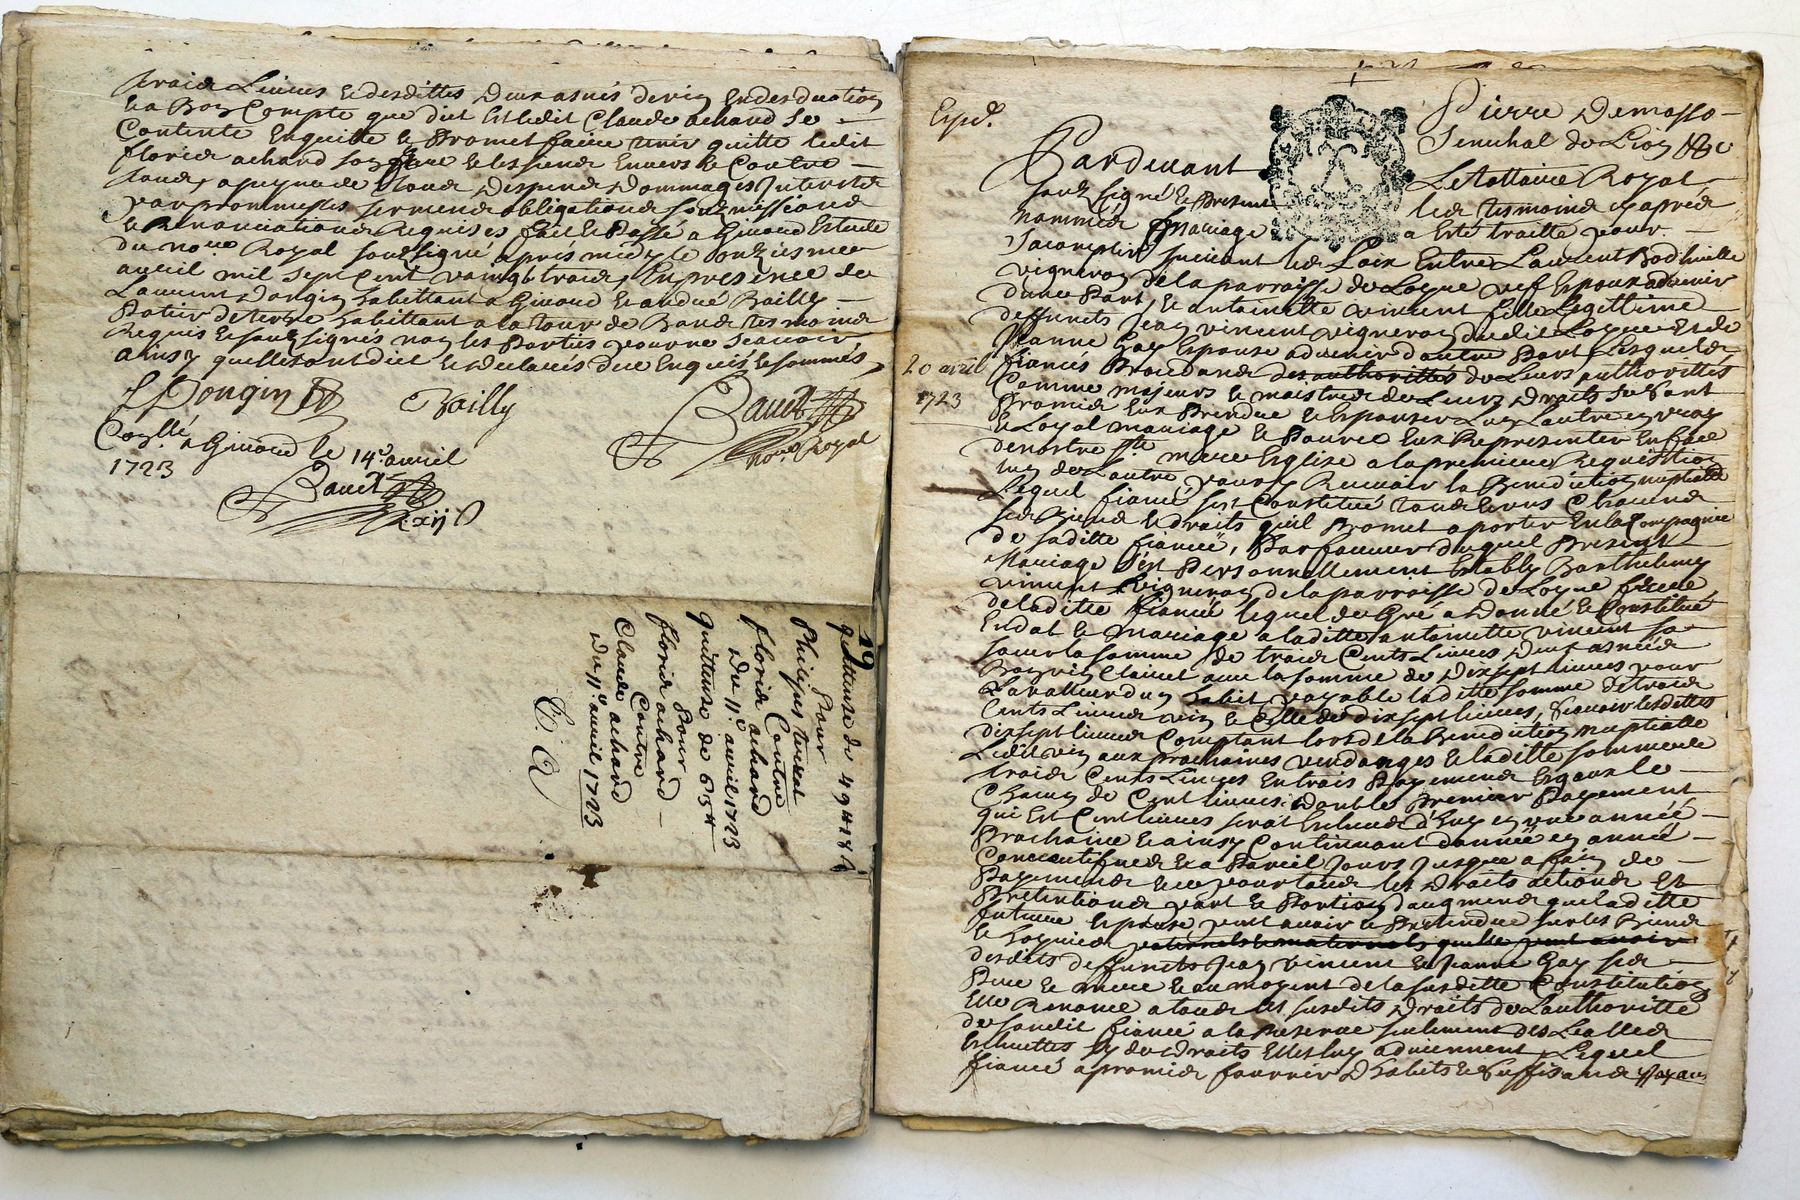 trois Livres & desdittes deux asnés de vin En desduction
& a Bon Compte que dit Est ledit Claude achard se
Contente En quitte & Promet faire tenir quitte ledit
floris achard son frere & les siens Envers & Contre
tous, a peyne de tous Despens Dommages Interets
par promesses serment obligations soubmissions
& Renonciations Requises fait & Passé a Givord Estude
du no.re Royal soussigné après midy le onziesme
avril mil sept Cent vaingt trois, En présence de
Laurent Dongin habittant a Givord & andré Bailly
Potier de terre habittant a la tour de
Requis & soussignés non les Parties pour ne scavoir
ainsy quelles ont dit & déclarés de ce Enquis & sommés
L Dongin
Bailly
Baud
no.re Royal
Con.llé a Givord le 14.e avril
1723
Baud
R xij s
19
quittance de
Pour
Philippes
Contre
floris achard
Du 11.e avril 1723
quittance de 63 #
Pour
floris achard
Contre
Claude achard
Du 11.e avril 1723
Exp.é
Pierre Demasso
Senechal de Lion &c
Pardevant Le Nottaire Royal
soubsigné & Present les tesmoins cy après
nommés Mariage a Esté traitté pour
s'accomplir suivant les Loix Entre Laurent Bodinette
vigneron de la parroisse de Loyre vef Epoux advenir
dune Part, & antoinette vincent fille Legittime
deffunts Jean vincent vigneron dudit Loyre & de
Jeanne Gay Espouse advenir dautre Part Lesquels
20 avril
1723
fiancés Procedans des authorittés de Leurs authorittés
Comme majeurs & maistres de Leurs Droits se sont
Promis Eux Prendre & Espouser Lun Lautre en vray
& Loyal mariage & Pour ce Eux Représenter En face
de nostre S.te mere Eglise a la premiere Requisition
lun de Lautre, pour y Recevoir la Benediction nuptialle
Lequel fiancé sest Constitué tous & uns Chacuns
ses Biens & droits quil Promet aporter En la Compagnie
de sa ditte fiancée, Par faveur duquel Present
Mariage s'est Personnellement Estably Barthelemy
vincent vigneron de la parroisse de Loyre frere
de laditte fiancée lequel de Gré a Donné & Constitué
En dot & mariage a laditte antoinette vincent sa
soeur la somme de trois Cents Livres deux asnées
Bon vin Clairet avec la somme de Dix sept livres pour
la valleur dun habit payable laditte somme de trois
Cents Livres vin & Celle de dix sept livres, scavoir lesdittes
dix sept livres Comptant lors de la Benediction nuptialle
Ledit vin aux prochaines vendanges & laditte somme de
trois Cents Livres En trois Payements Egaux le
Chacun de Cent livres dont le Premier Payement
qui Est Cent livres sera Escheu d'huy en une année
Prochaine & ainsy Continuant dannée en année
Consecutifves & a Pareil Jours Jusque a fain de
Payements & ce pour tous les Droits actions Et
Pretentions part & Portion d'augment que laditte
future Epouse peut avoir & Pretendre sur les Biens
& hoyries paternels & maternels quelle peut avoir
desdits deffunts Jean vincent & Jeanne Gay ses
Pere & mere & au moyent de la susditte Constitution
Elle Renonce a tous les susdits Droits de Lauthoritté
de sondit fiancé a la Reserve seulement des Loialles
Escheuttes sy des Droits Elles luy adviennent Lequel
fiancé a promis fournir D'habits &